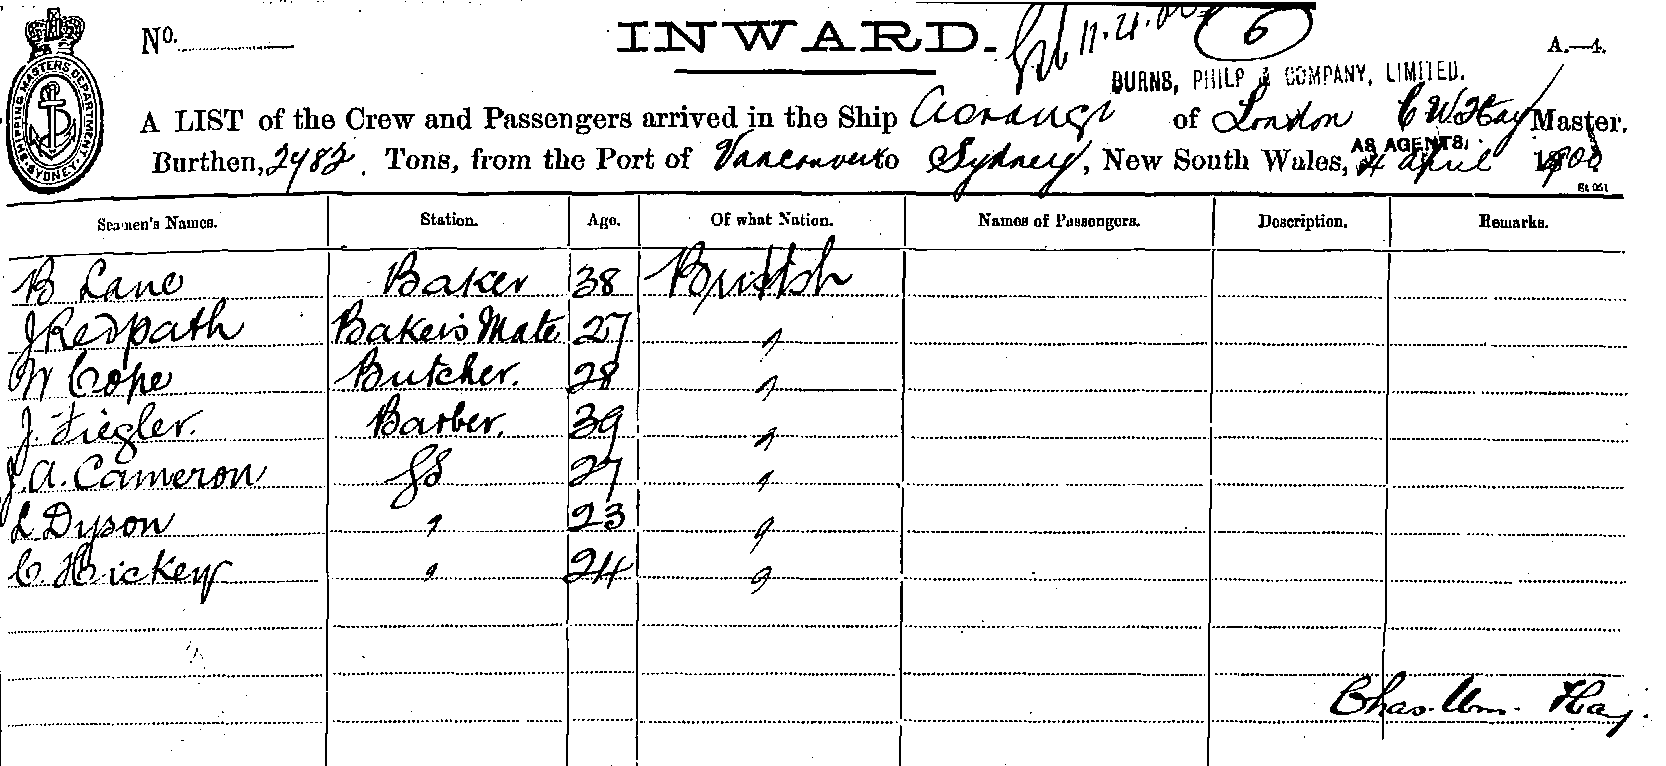 No.
INWARD.
6
A.—4.
BURNS, PHILP & COMPANY, LIMITED.
SHIPPING MASTERS DEPARTMENT SYDNEY
A LIST of the Crew and Passengers arrived in the Ship Aorangi of London C W Hay Master.
AS AGENTS.
Burthen, 2782 Tons, from the Port of Vancouver to Sydney, New South Wales, 4 April 1900
Seamen's Names. Station. Age. Of what Nation. Names of Passengers. Description. Remarks.
B Lane Baker 38 British
J Redpath Baker's Mate 27 "
W Cope Butcher. 28 "
J. Fiegler. Barber. 39 "
J. A. Cameron GS 27 "
L Dyson " 23 "
C. Hickey " 24 "
Chas. Wm. Hay.